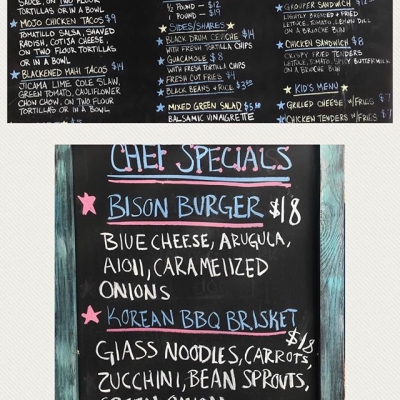 SAUCE, ON TWO FLOUR
TORTILLAS OR IN A BOWL
MOJO CHICKEN TACOS $9
TOMATILLO SALSA, SHAVED
RADISH, COTIJA CHEESE,
ON TWO FLOUR TORTILLAS
OR IN A BOWL
BLACKENED MAHI TACOS $14
JICAMA LIME COLE SLAW,
GREEN TOMATO, CAULIFLOWER
CHOW CHOW, ON TWO FLOUR
TORTILLAS OR IN A BOWL
½ POUND - $12
1 POUND - $19
SIDES/SHARES
BLACK DRUM CEVICHE $14
WITH FRESH TORTILLA CHIPS
GUACAMOLE $8
WITH FRESH TORTILLA CHIPS
FRESH CUT FRIES $4
BLACK BEANS & RICE
MIXED GREEN SALAD
BALSAMIC VINAIGRETTE
GROUPER SANDWICH
LIGHTLY BREADED & FRIED
LETTUCE, TOMATO, LEMON DILL
ON A BRIOCHE BUN
CHICKEN SANDWICH $8
CRISPY FRIED TENDERS
LETTUCE, TOMATO, SPICY BUTTERMILK
ON A BRIOCHE BUN
KID'S MENU
GRILLED CHEESE W/FRIES $7
CHICKEN TENDERS W/FRIES $7
CHEF SPECIALS
BISON BURGER $18
BLUE CHEESE, ARUGULA,
AIOLI, CARAMELIZED
ONIONS
KOREAN BBQ BRISKET
$18
GLASS NOODLES, CARROTS,
ZUCCHINI, BEAN SPROUTS,
GREEN ONION